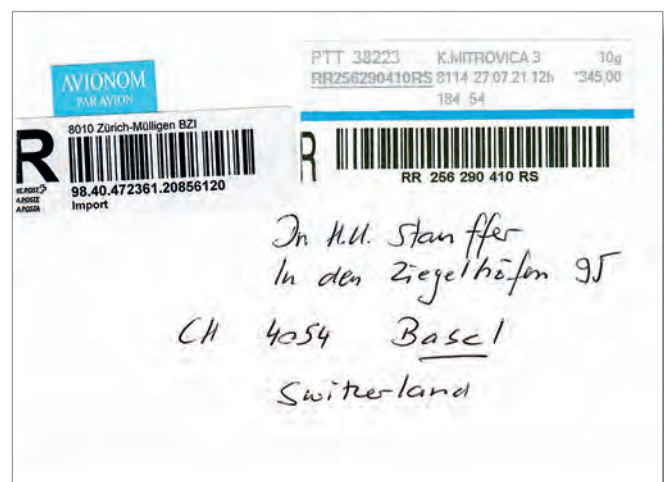 AVIONOM
PAR AVION
PTT 38223 K.MITROVICA 3 10g
RR256290410RS 8114 27.07.21 12h *345,00
184 54
8010 Zürich-Mülligen BZI
R
98.40.472361.20856120
Import
R
RR 256 290 410 RS
H.U. Stauffer
In den Ziegelhöfen 95
CH 4054 Basel
Switzerland